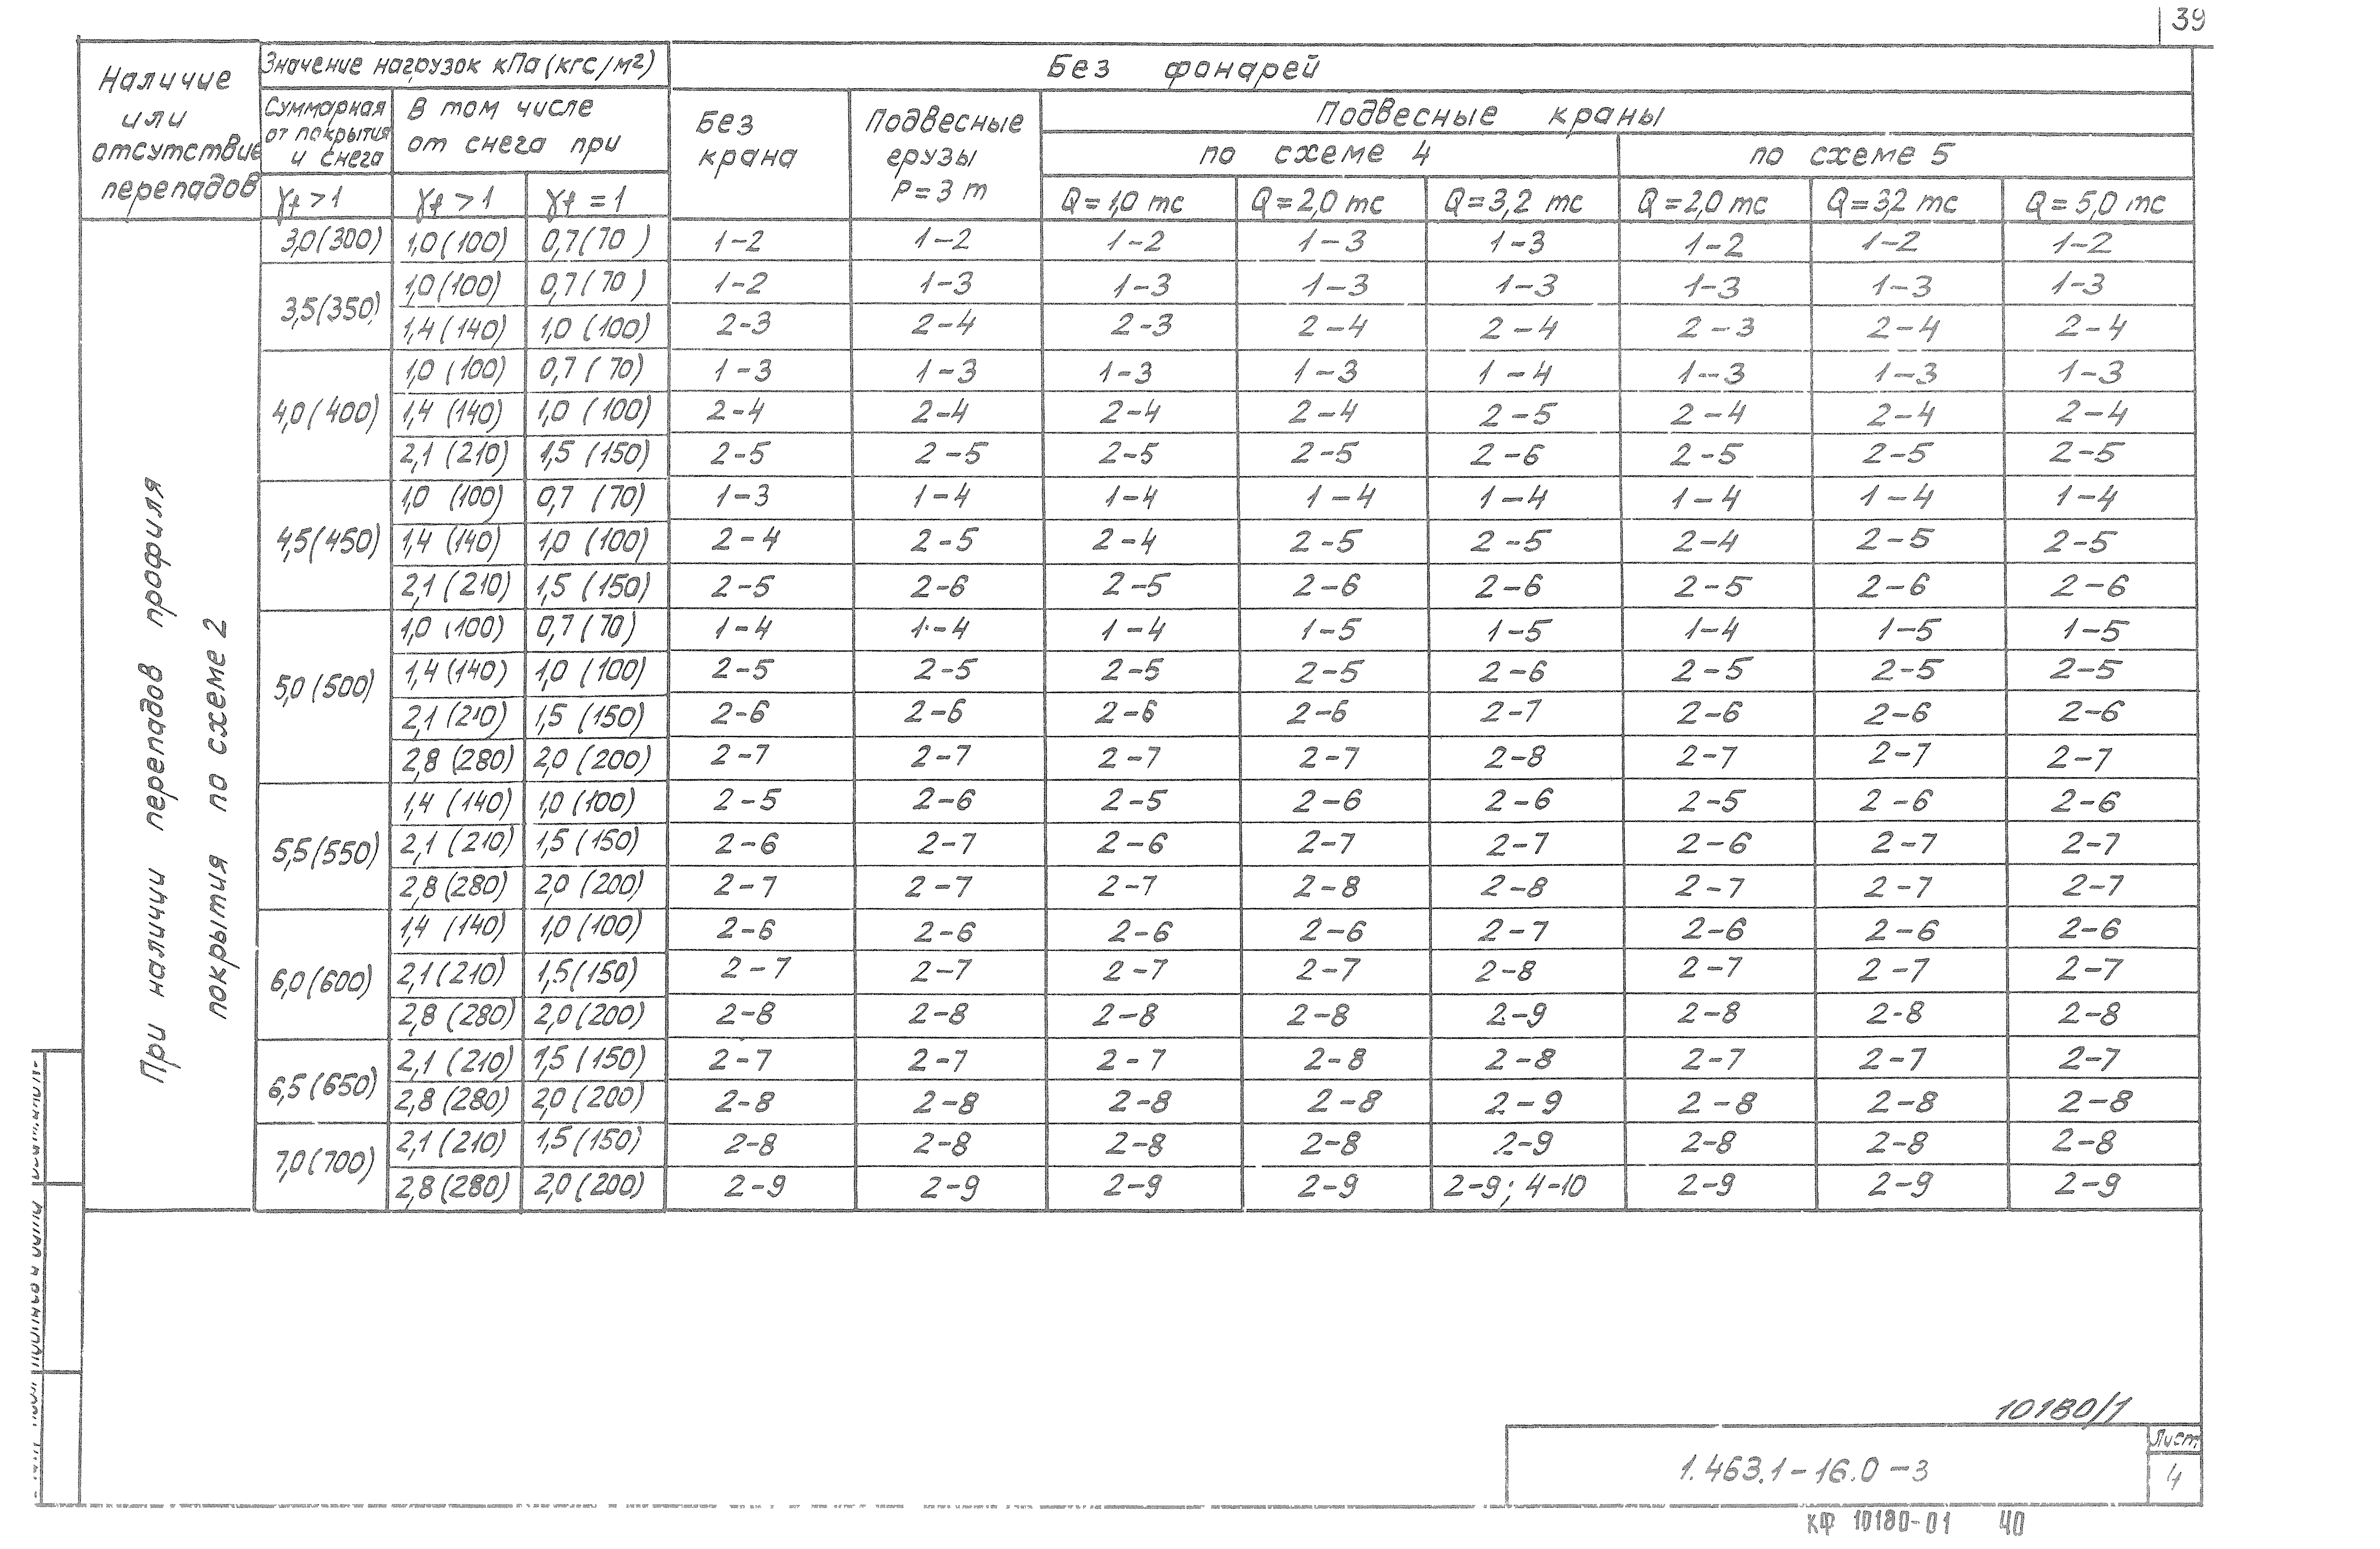 39
Наличие
или
отсутствие
перепадов
Значение нагрузок кПа (кгс/м²)
Суммарная
от покрытия
и снега
В том числе
от снега при
γf >1
γf >1
γf =1
Без фонарей
Без
крана
Подвесные
грузы
P=3 т
Подвесные краны
по схеме 4
по схеме 5
Q=1,0 тс Q=2,0 тс Q=3,2 тс Q=2,0 тс Q=3,2 тс Q=5,0 тс
При наличии перепадов профиля
покрытия по схеме 2
3,0(300) 1,0(100) 0,7(70) 1-2 1-2 1-2 1-3 1-3 1-2 1-2 1-2
3,5(350) 1,0(100) 0,7(70) 1-2 1-3 1-3 1-3 1-3 1-3 1-3 1-3
1,4(140) 1,0(100) 2-3 2-4 2-3 2-4 2-4 2-3 2-4 2-4
4,0(400) 1,0(100) 0,7(70) 1-3 1-3 1-3 1-3 1-4 1-3 1-3 1-3
1,4(140) 1,0(100) 2-4 2-4 2-4 2-4 2-5 2-4 2-4 2-4
2,1(210) 1,5(150) 2-5 2-5 2-5 2-5 2-6 2-5 2-5 2-5
4,5(450) 1,0(100) 0,7(70) 1-3 1-4 1-4 1-4 1-4 1-4 1-4 1-4
1,4(140) 1,0(100) 2-4 2-5 2-4 2-5 2-5 2-4 2-5 2-5
2,1(210) 1,5(150) 2-5 2-6 2-5 2-6 2-6 2-5 2-6 2-6
5,0(500) 1,0(100) 0,7(70) 1-4 1-4 1-4 1-5 1-5 1-4 1-5 1-5
1,4(140) 1,0(100) 2-5 2-5 2-5 2-5 2-6 2-5 2-5 2-5
2,1(210) 1,5(150) 2-6 2-6 2-6 2-6 2-7 2-6 2-6 2-6
2,8(280) 2,0(200) 2-7 2-7 2-7 2-7 2-8 2-7 2-7 2-7
5,5(550) 1,4(140) 1,0(100) 2-5 2-6 2-5 2-6 2-6 2-5 2-6 2-6
2,1(210) 1,5(150) 2-6 2-7 2-6 2-7 2-7 2-6 2-7 2-7
2,8(280) 2,0(200) 2-7 2-7 2-7 2-8 2-8 2-7 2-7 2-7
6,0(600) 1,4(140) 1,0(100) 2-6 2-6 2-6 2-6 2-7 2-6 2-6 2-6
2,1(210) 1,5(150) 2-7 2-7 2-7 2-7 2-8 2-7 2-7 2-7
2,8(280) 2,0(200) 2-8 2-8 2-8 2-8 2-9 2-8 2-8 2-8
6,5(650) 2,1(210) 1,5(150) 2-7 2-7 2-7 2-8 2-8 2-7 2-7 2-7
2,8(280) 2,0(200) 2-8 2-8 2-8 2-8 2-9 2-8 2-8 2-8
7,0(700) 2,1(210) 1,5(150) 2-8 2-8 2-8 2-8 2-9 2-8 2-8 2-8
2,8(280) 2,0(200) 2-9 2-9 2-9 2-9 2-9; 4-10 2-9 2-9 2-9
10180/1
1.463.1-16.0-3
Лист
4
КФ 10180-01 40